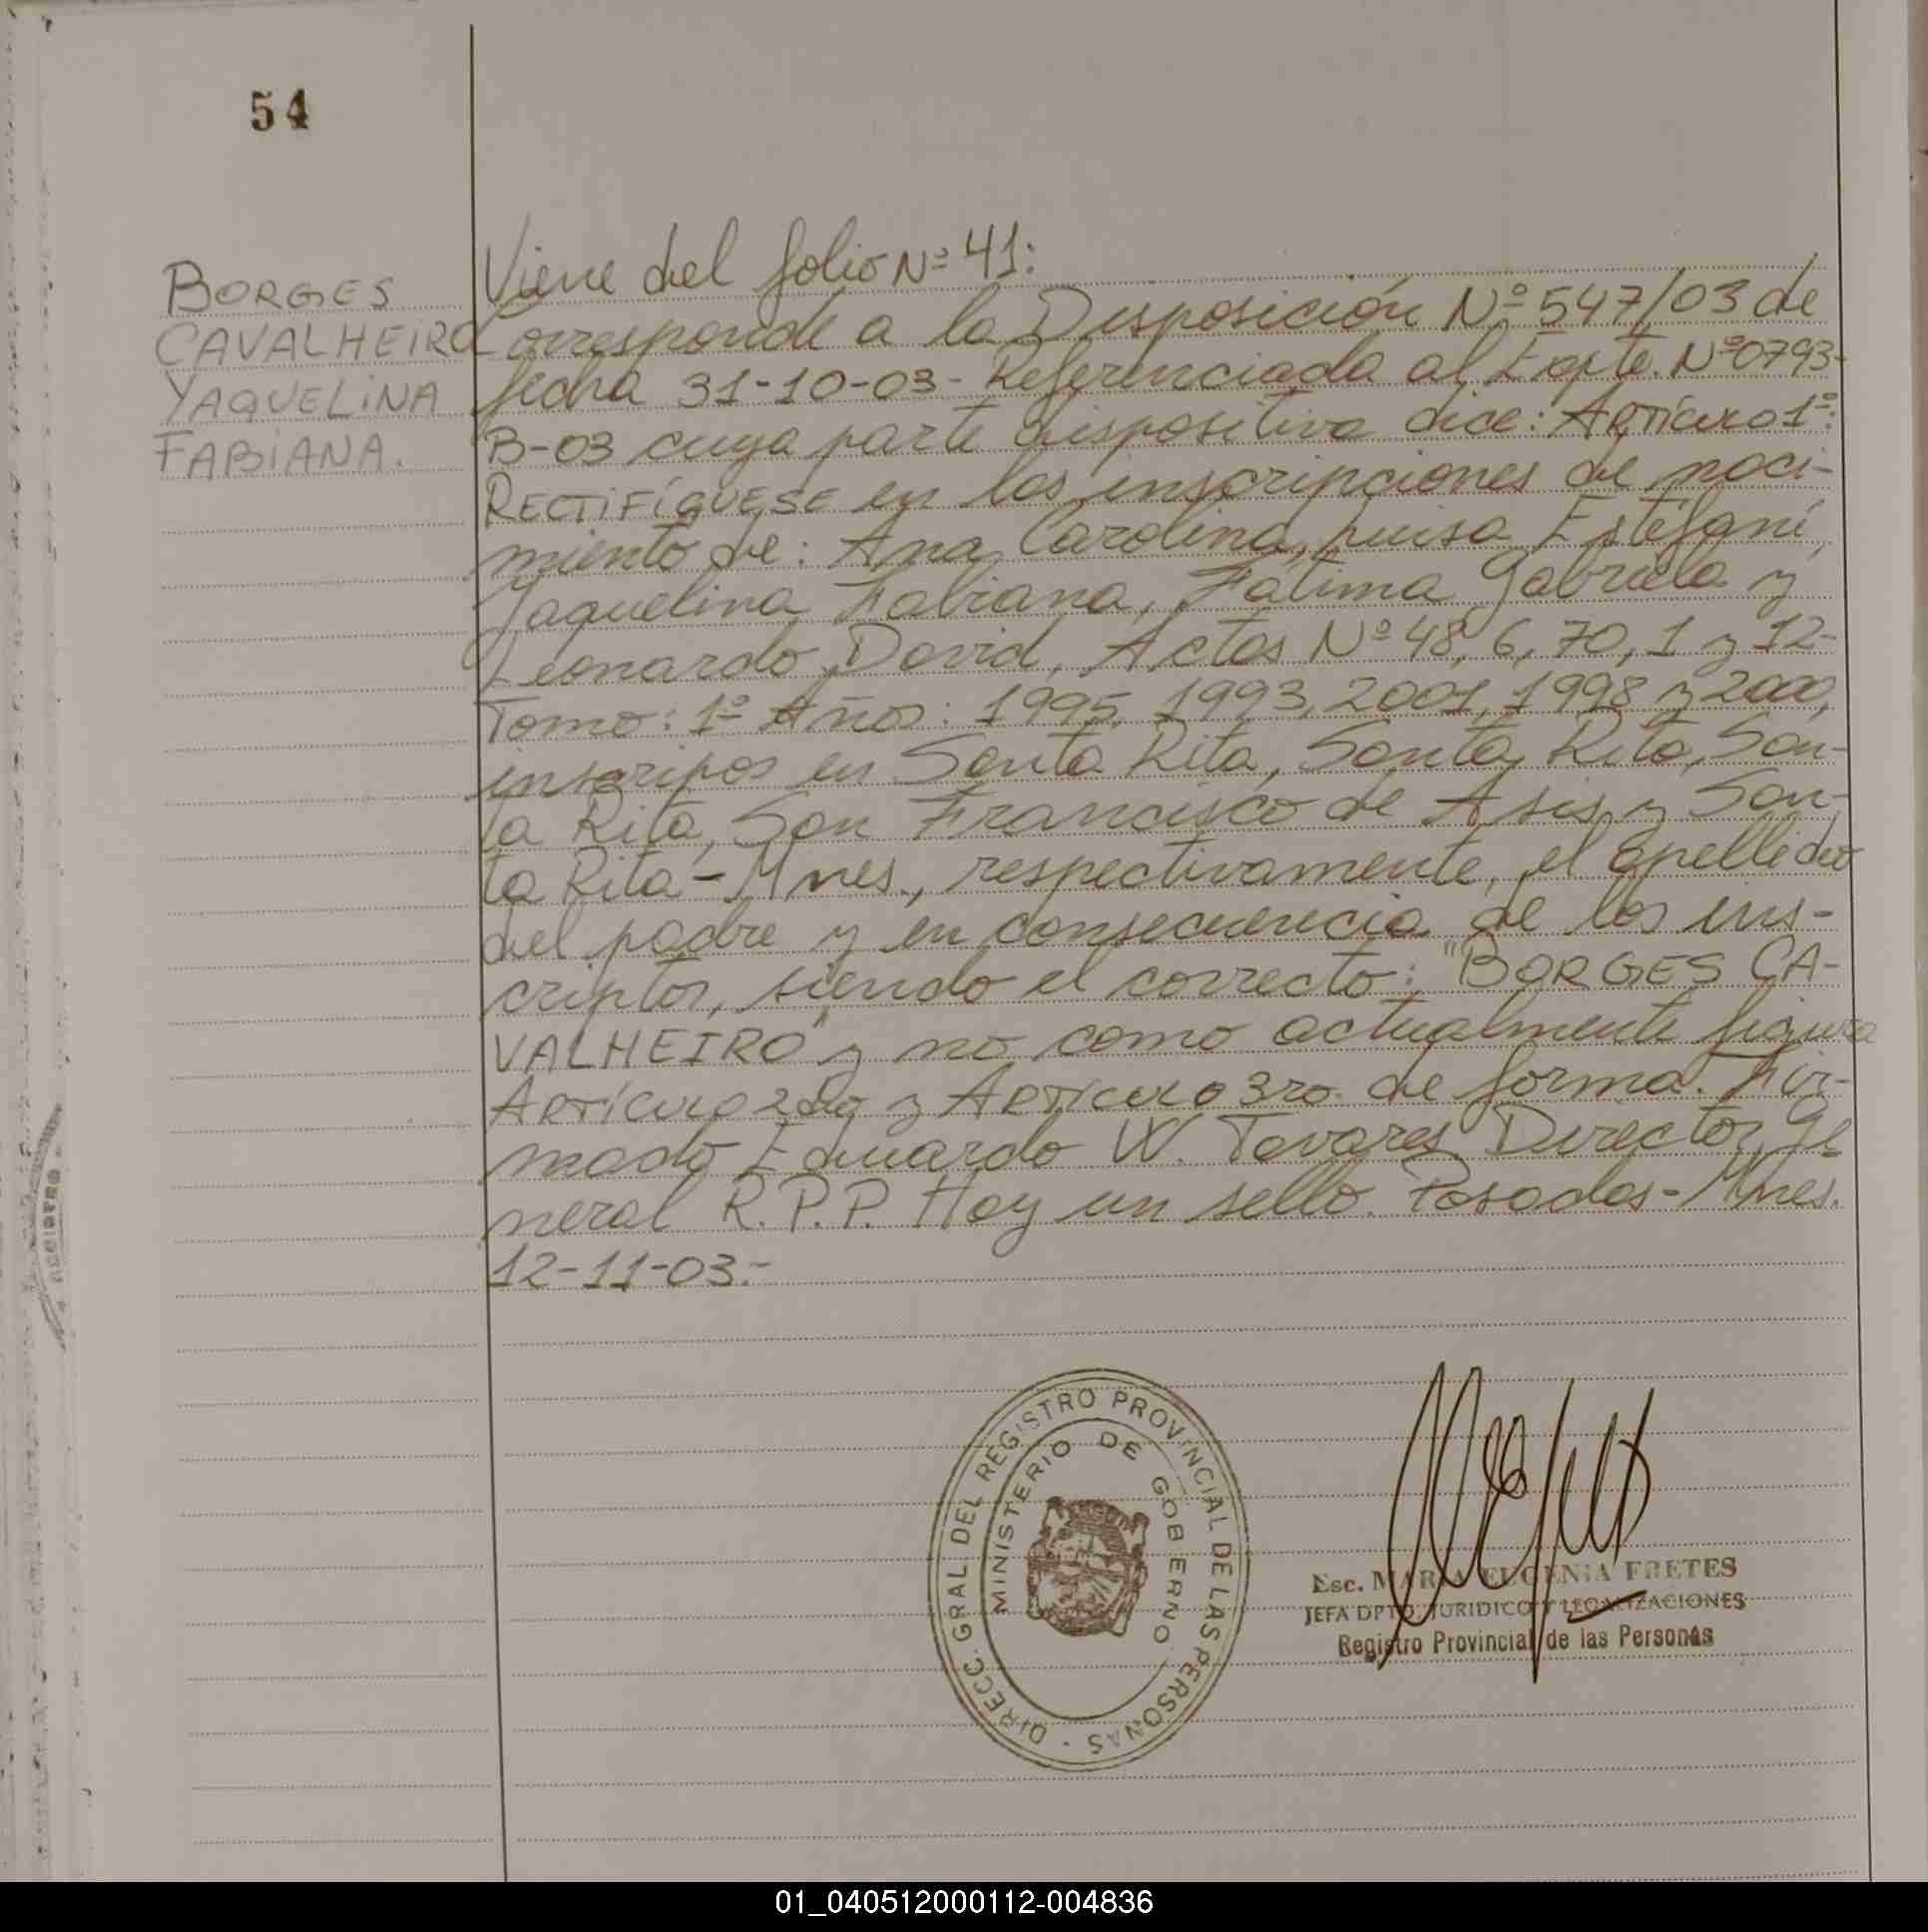 54
BORGES
CAVALHEIRO
YAQUELINA
FABIANA.
Viene del folio Nº 41:
Corresponde a la Disposición Nº 547/03 de
fecha 31-10-03- Referenciada al Expte. Nº 0793-
B-03 cuya parte dispositiva dice: ARTÍCULO 1º:
RECTIFÍQUESE en las inscripciones de naci-
miento de: Ana Carolina, Luisa Estefani,
Yaquelina Fabiana, Fatima Gabriela y
Leonardo David, Actas Nº 48, 6, 70, 1 y 12-
Tomo: 1º Años: 1995, 1993, 2001, 1998 y 2000,
inscripos en Santa Rita, Santa Rita, San-
ta Rita, San Francisco de Asis y San-
ta Rita - Mnes., respectivamente, el apellido
del padre y en consecuencia de los ins-
criptos, siendo el correcto: "BORGES CA-
VALHEIRO" y no como actualmente figura
ARTÍCULO 2do y ARTÍCULO 3ro. de forma. Fir-
mado Eduardo W. Tavares Director Ge
neral R.P.P. Hay un sello. Posadas - Mnes.
12-11-03.-
DIRECC. GRAL DEL REGISTRO PROVINCIAL DE LAS PERSONAS -
MINISTERIO DE GOBIERNO
Esc. MARIA EUGENIA FRETES
JEFA DPTO. JURIDICO Y LEGALIZACIONES
Registro Provincial de las Personas
01_040512000112-004836